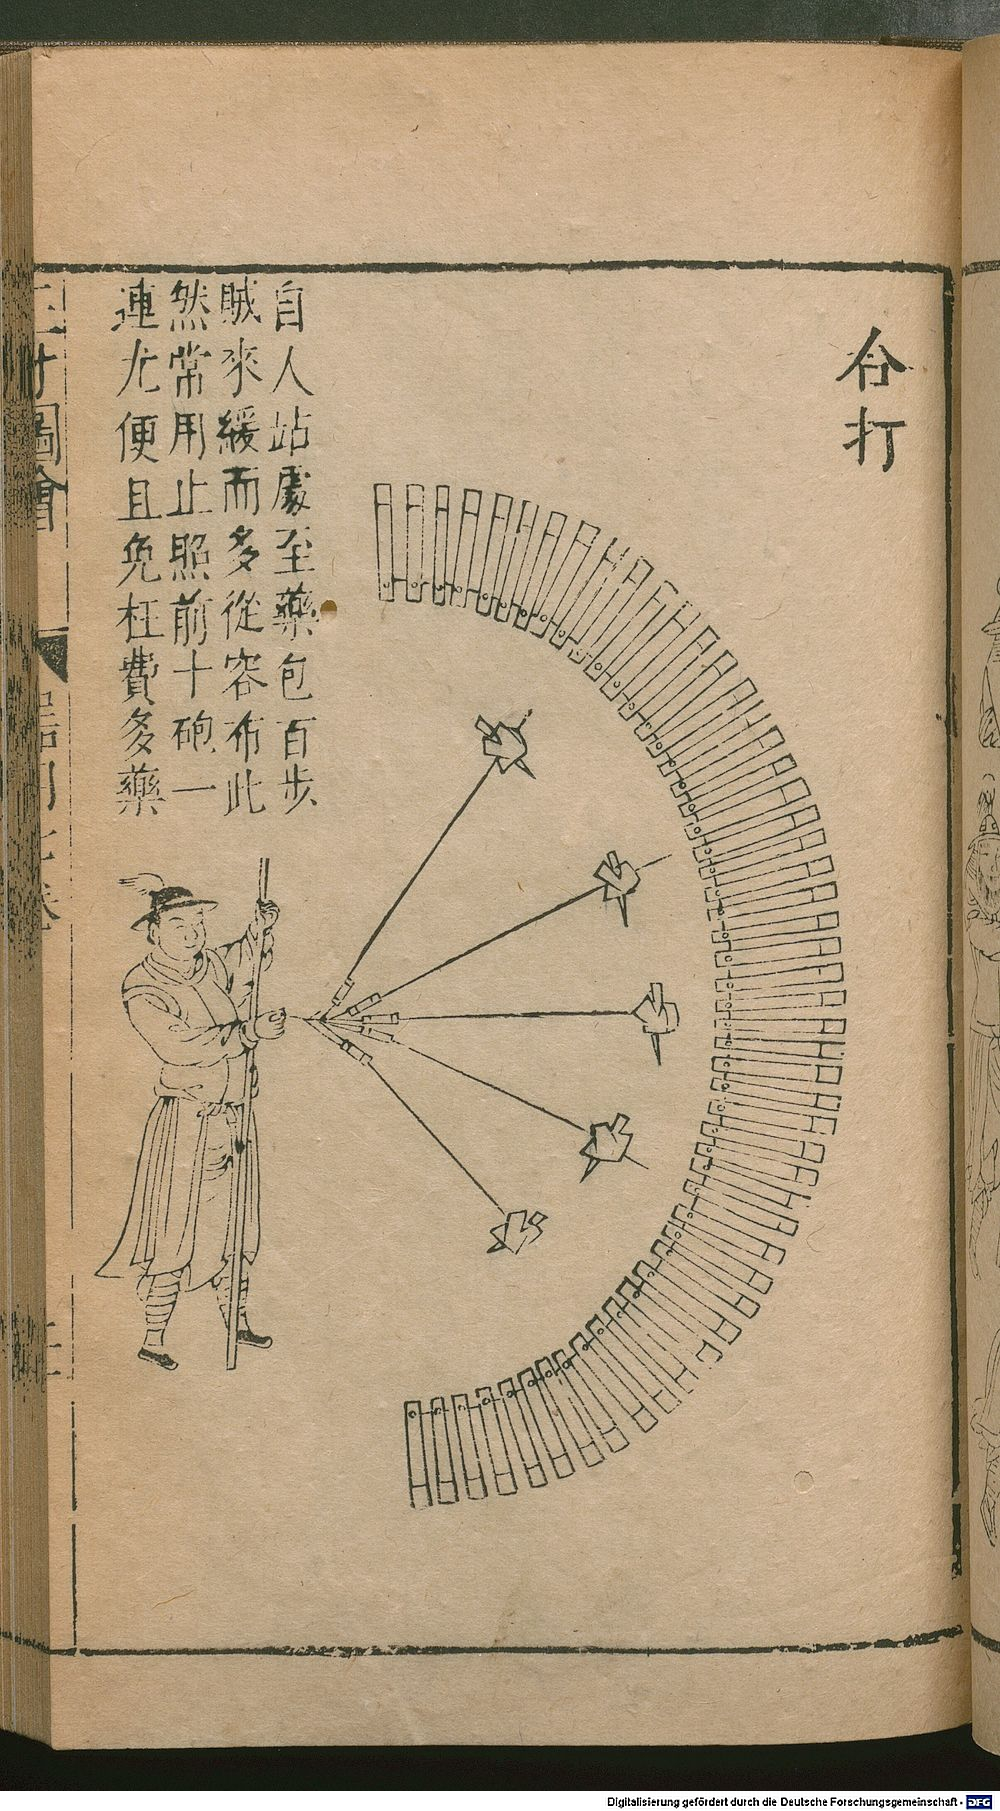 合打
自人站處至藥包百步
賊來緩而多從容布此
然常用止照前十砲一
連尤便且免枉費多藥
三才圖會
器用七卷
Digitalisierung gefördert durch die Deutsche Forschungsgemeinschaft - DFG